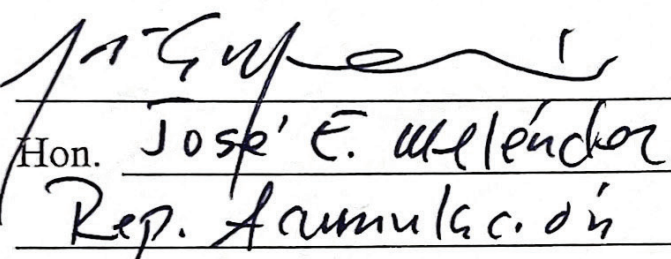 Hon. José E. Meléndez
Rep. Acumulación